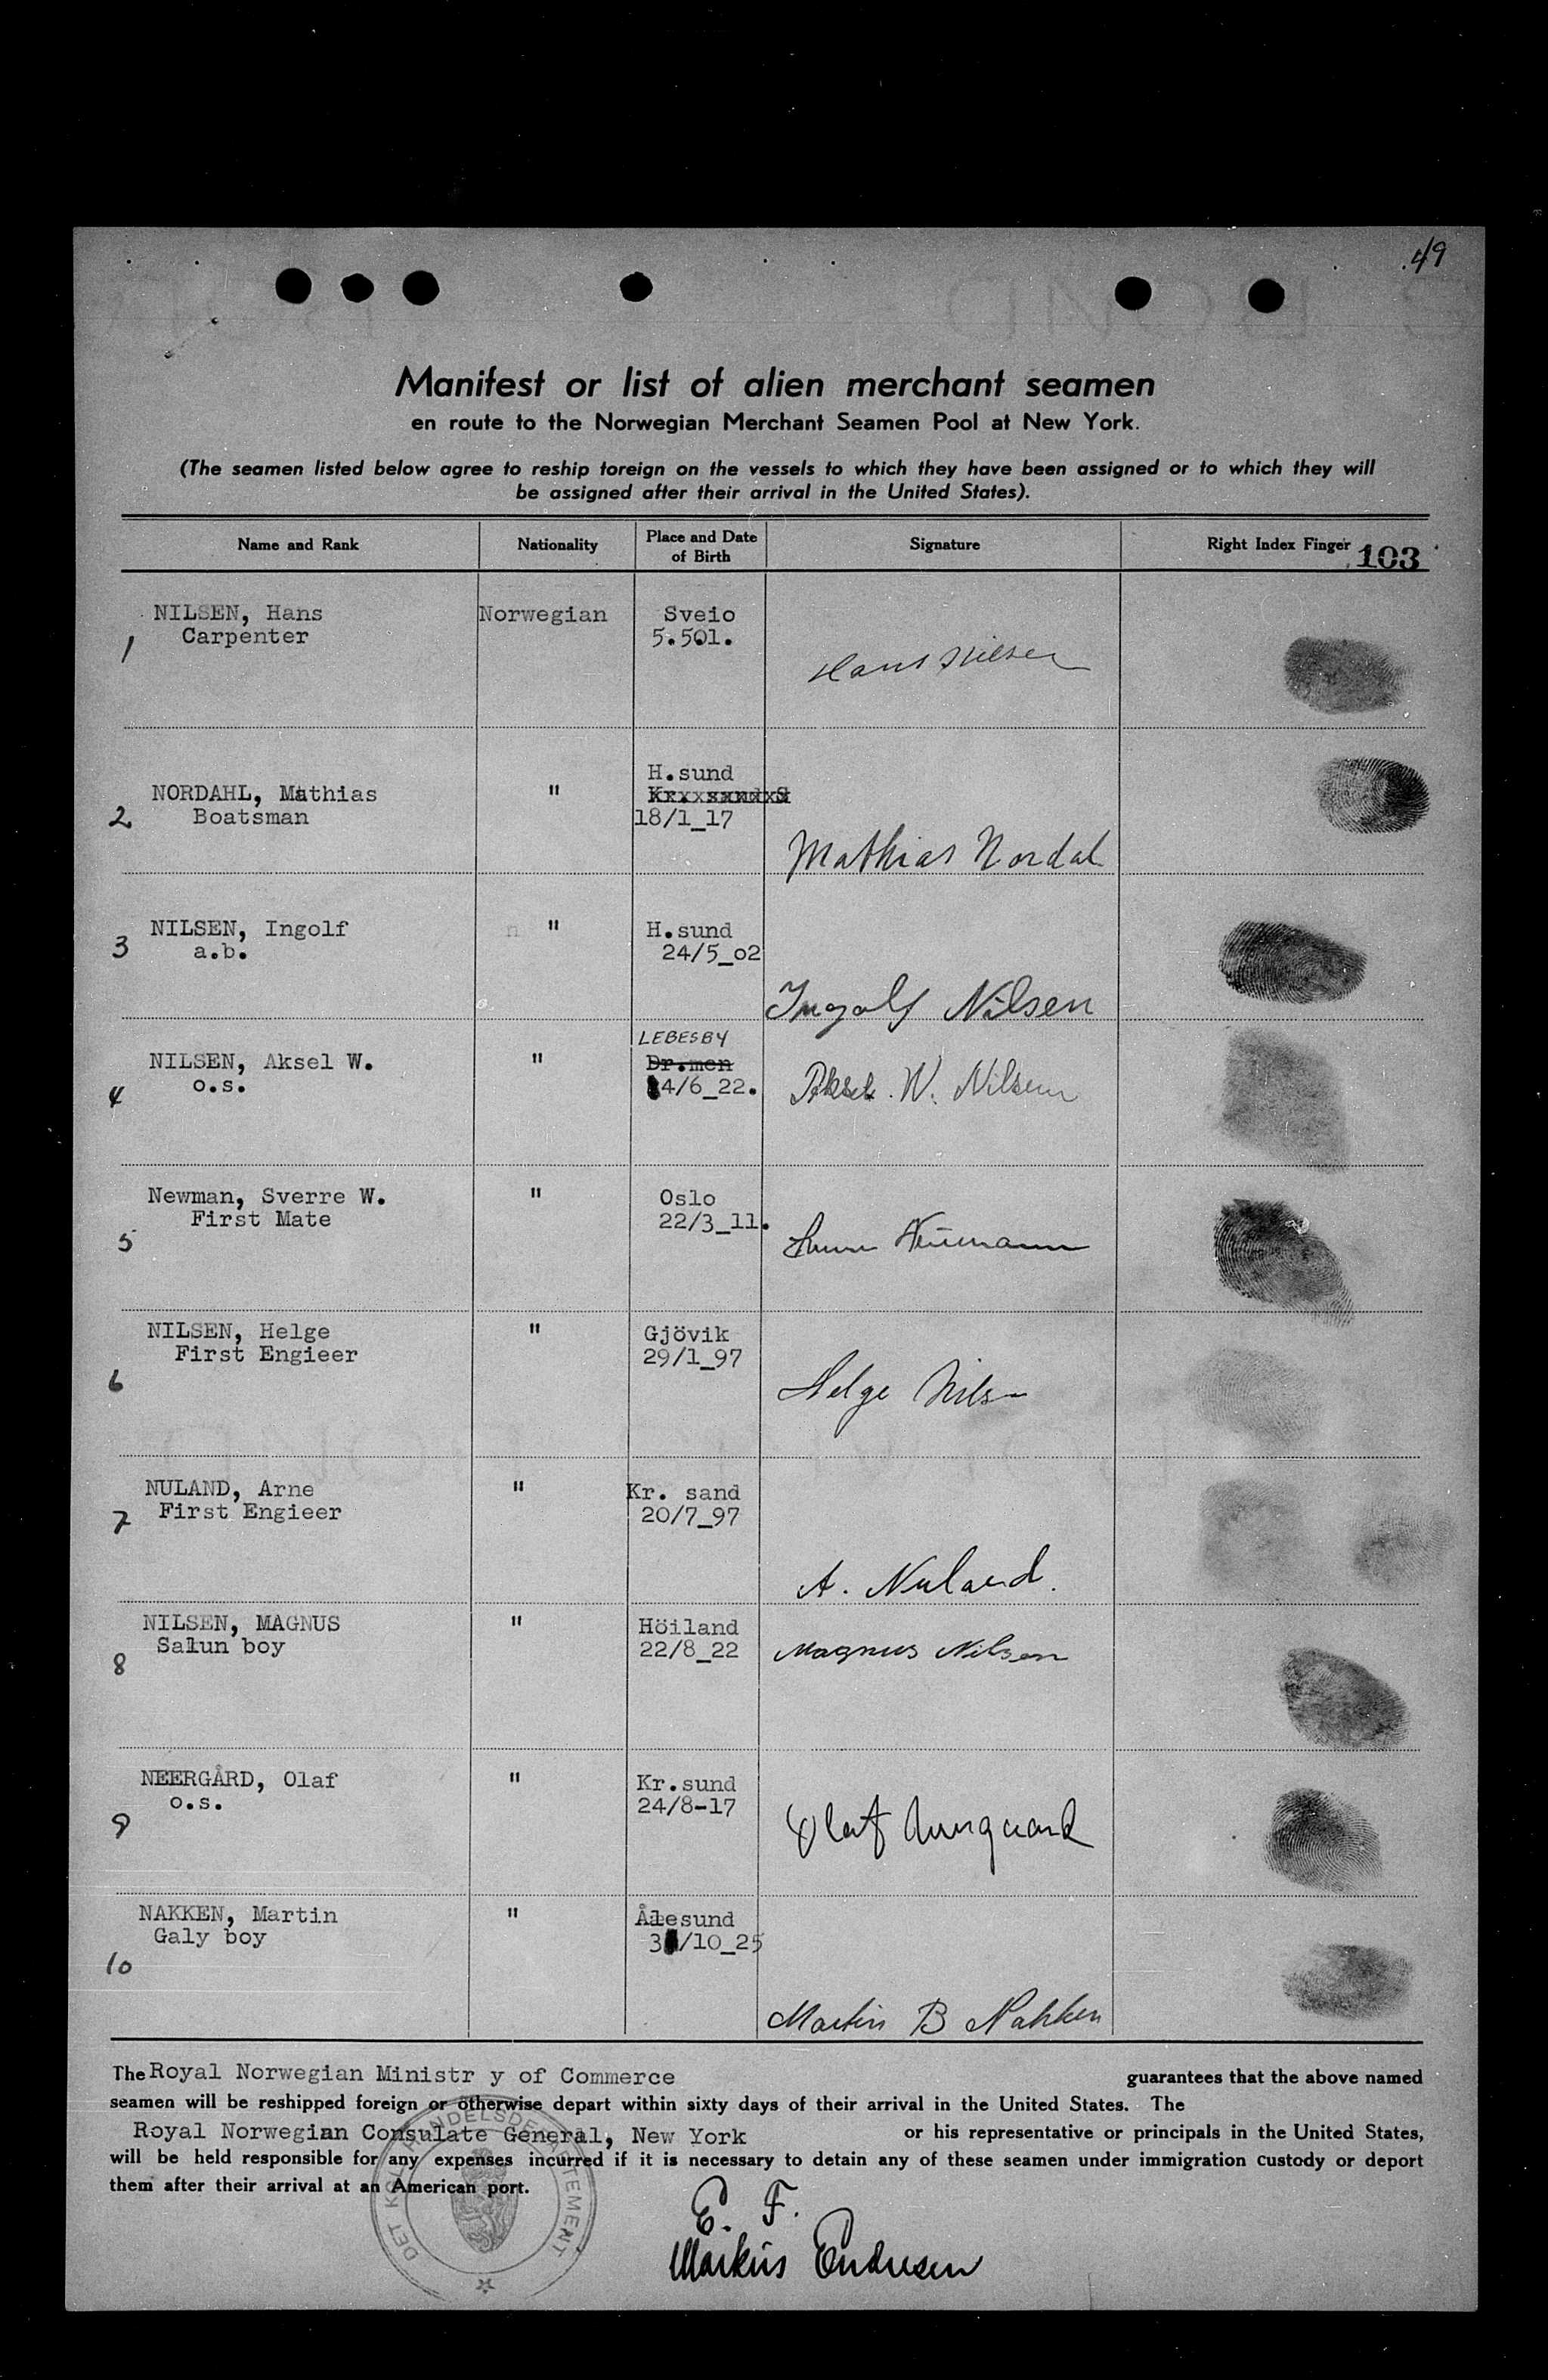 49
Manifest or list of alien merchant seamen
en route to the Norwegian Merchant Seamen Pool at New York.
(The seamen listed below agree to reship foreign on the vessels to which they have been assigned or to which they will
be assigned after their arrival in the United States).
Name and Rank Nationality Place and Date of Birth Signature Right Index Finger 103
NILSEN, Hans Norwegian Sveio
1 Carpenter 5.501.
Hans Nilsen
H.sund
NORDAHL, Mathias " Kr. sand S
2 Boatsman 18/1_17
Mathias Nordal
NILSEN, Ingolf " H.sund
3 a.b. 24/5_02
Ingolf Nilsen
LEBESBY
NILSEN, Aksel W. " Dr.men
4 o.s. 4/6_22. Aksel. W. Nilsen
Newman, Sverre W. " Oslo
5 First Mate 22/3_11.
Neumann
NILSEN, Helge " Gjövik
6 First Engieer 29/1_97
Helge Nilsen
NULAND, Arne " Kr. sand
7 First Engieer 20/7_97
A. Nuland.
NILSEN, MAGNUS " Höiland
8 Salun boy 22/8_22 Magnus Nilsen
NEERGÅRD, Olaf " Kr.sund
9 o.s. 24/8-17
Olaf Neergaard
NAKKEN, Martin " Ålesund
10 Galy boy /10_25
Martin B Nakken
The Royal Norwegian Ministr y of Commerce guarantees that the above named
seamen will be reshipped foreign or otherwise depart within sixty days of their arrival in the United States. The
Royal Norwegian Consulate General, New York or his representative or principals in the United States,
will be held responsible for any expenses incurred if it is necessary to detain any of these seamen under immigration custody or deport
them after their arrival at an American port.
DET KGL. HANDELSDEPARTEMENT
E. F.
Markus Endresen